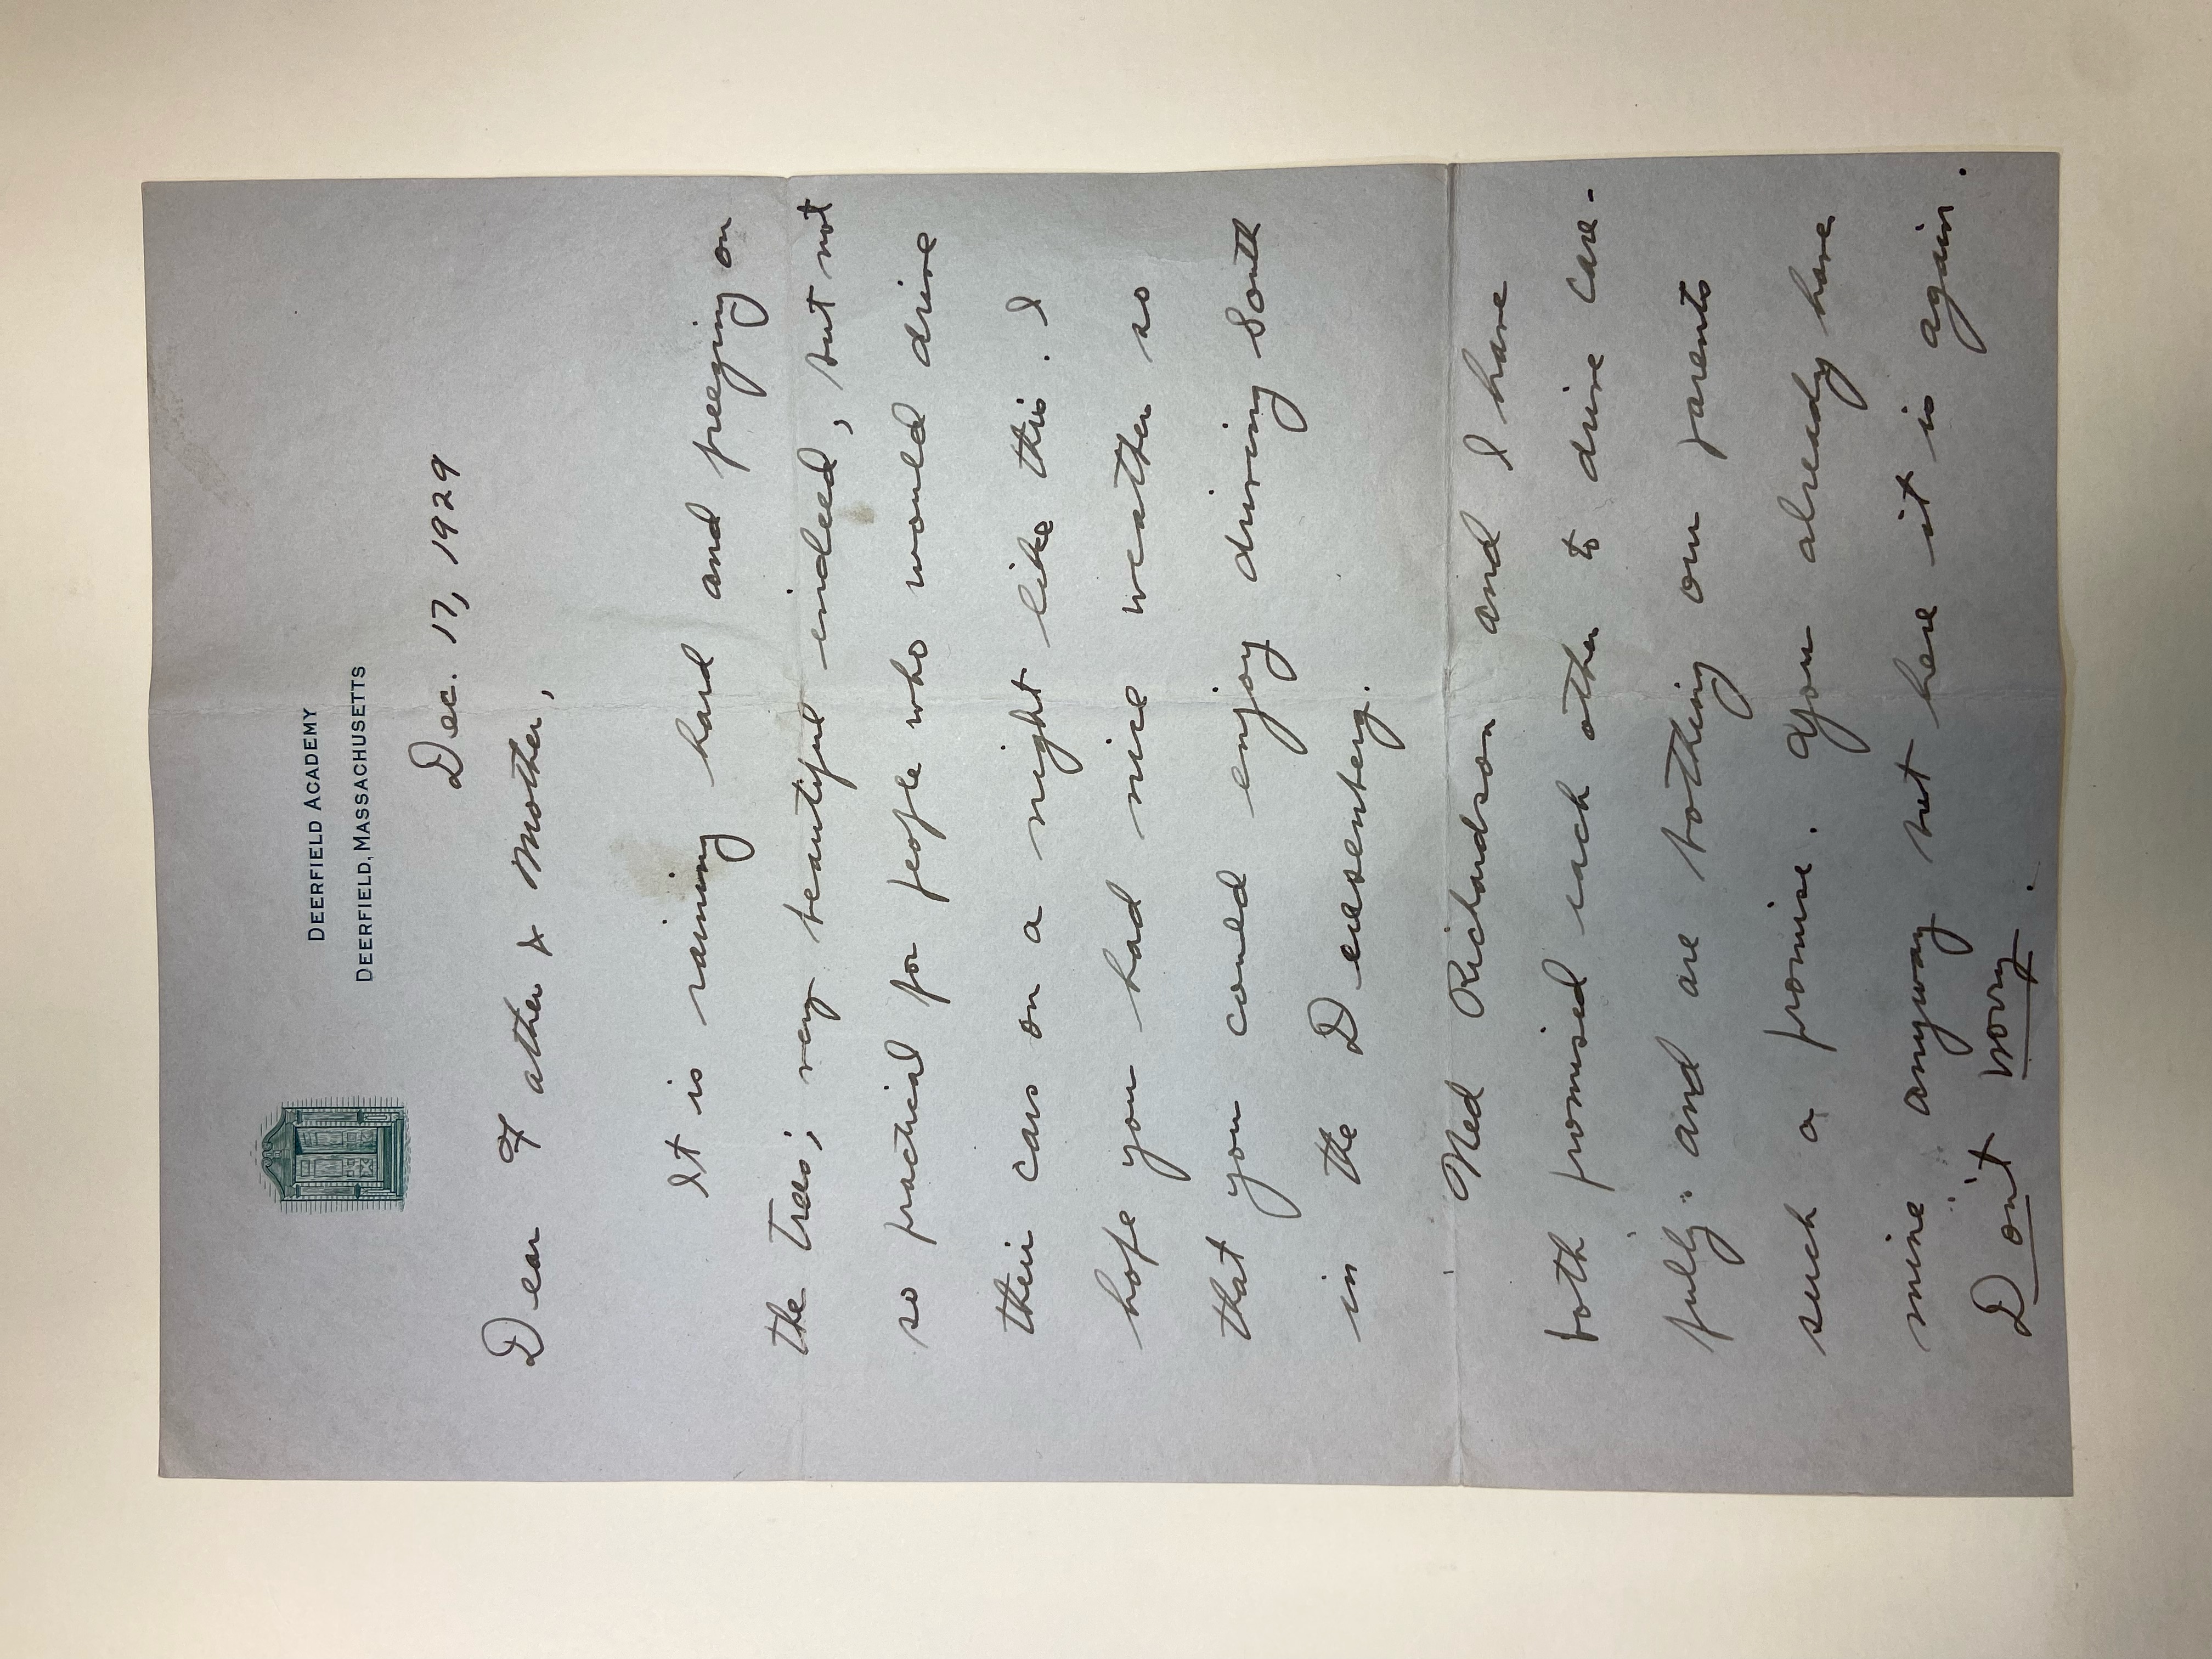 DEERFIELD ACADEMY
DEERFIELD, MASSACHUSETTS
Dec. 17, 1929
Dear Father & Mother,
It is raining hard and freezing on
the trees; very beautiful indeed, but not
so practical for people who would drive
their cars on a night like this. I
hope you had nice weather so
that you could enjoy driving South
in the Deusenberg.
Ned Richardson and I have
both promised each other to drive care-
fully and are bothing our parents
such a promise. You already have
mine anyway but here it is again.
Don't worry.